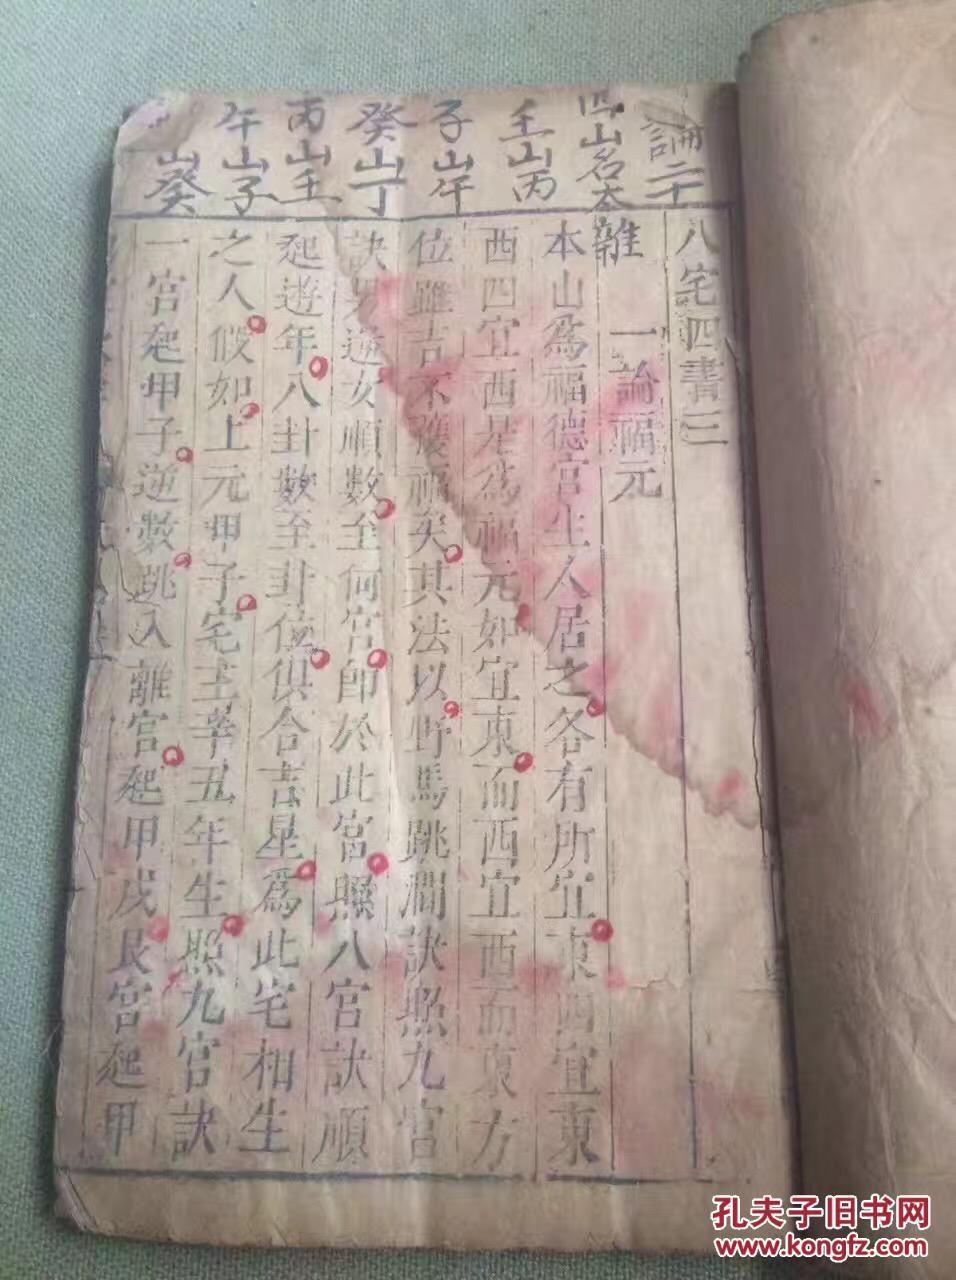 論二十
四山名大
壬山丙
子山午
癸山丁
丙山壬
午山子
山癸
八宅四書三
雜
一論福元
本山為福德宮生人居之各有所宜東四宜東
西四宜西是為福元如宜東而西宜西而東方
位雖吉不獲福矣其法以野馬跳澗訣照九宮
訣男逆女順數至何宮即於此宮照八宮訣順
起遊年八卦數至卦位俱合吉星為此宅相生
之人假如上元甲子宅主辛丑年生照九宮訣
一宮起甲子逆數跳入離宮起甲戌艮宮起甲
孔夫子旧书网
www.kongfz.com